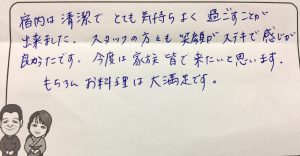 宿内は清潔で とても気持ちよく 過ごすことが
出来ました。スタッフの方々も 笑顔が ステキで 感じが
良かったです。今度は 家族 皆で 来たいと思います。
もちろん お料理は 大満足です。